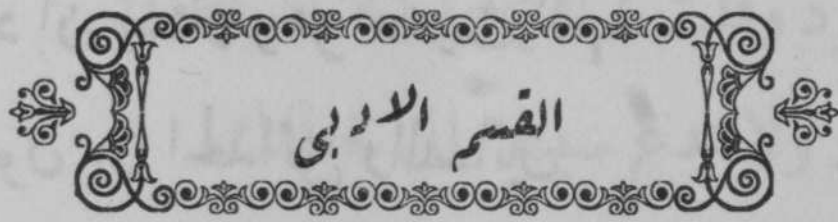 القسم الادبى